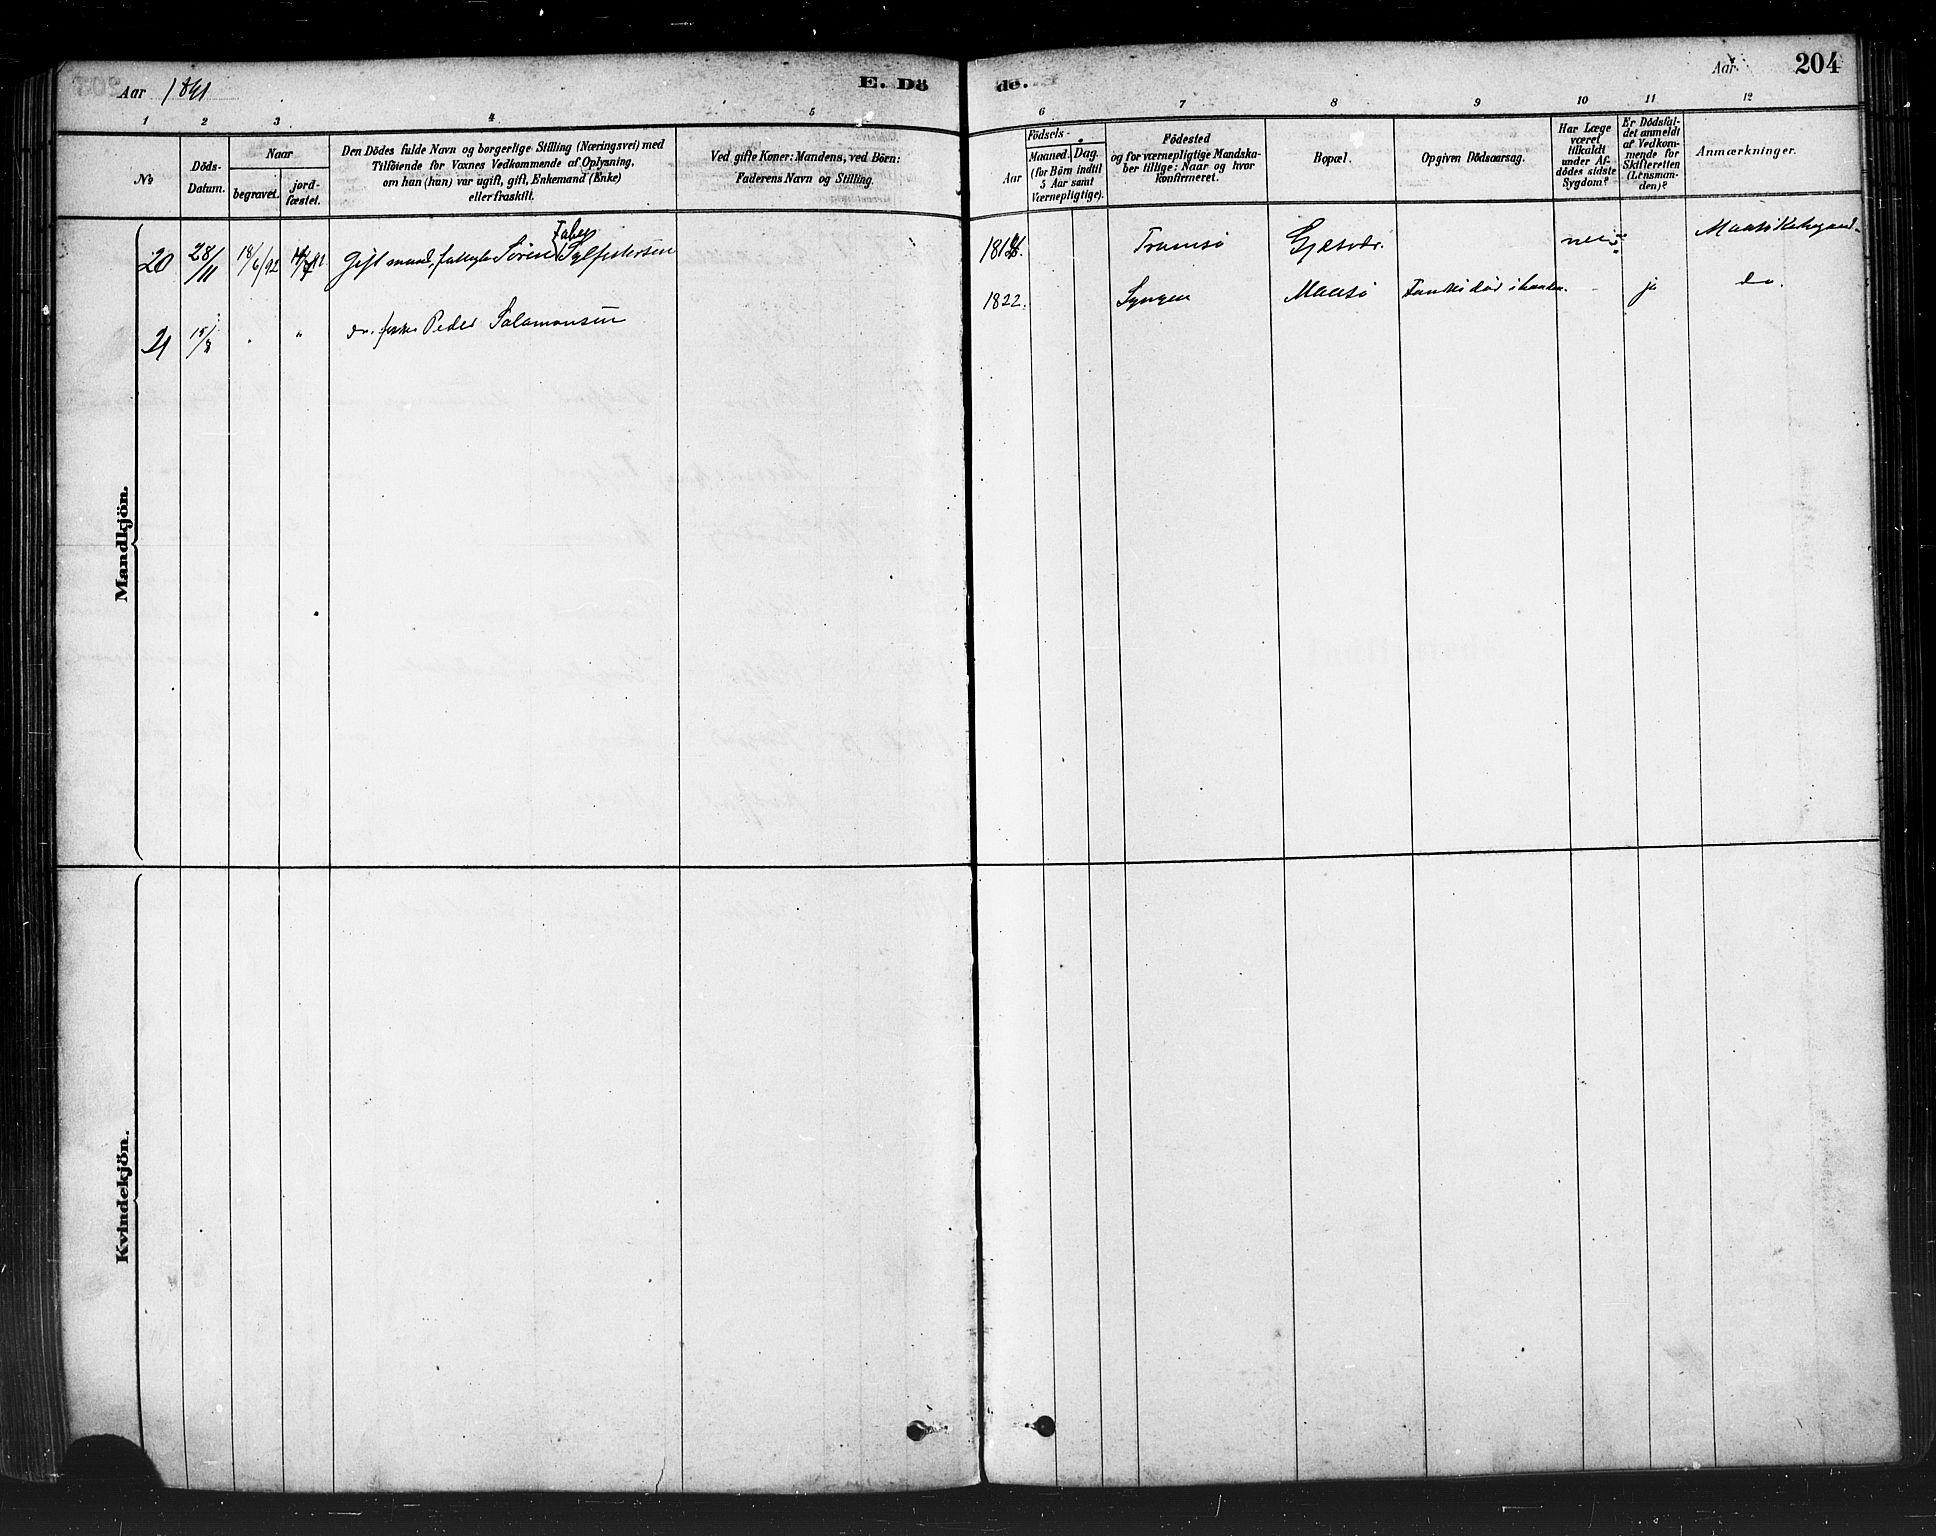 Aar 1891 E. Dö
de. Aar 204
1 2 3 4 5
6 7 8 9 10 11 12
No
Döds-
Datum.
Naar
begravet.
jord-
fæstet.
Den Dödes fulde Navn og borgerlige Stilling (Næringsvei) med
Tilföiende for Voxnes Vedkommende af Oplysning,
om han (hun) var ugift, gift, Enkemand (Enke)
eller fraskilt.
Ved gifte Koner: Mandens, ved Börn:
Faderens Navn og Stilling.
Födsels-
Aar
Maaned. Dag.
(for Börn indtil
5 Aar samt
Værnepligtige).
Födested
og for værnepligtige Mandska-
ber tillige: Naar og hvor
konfirmeret.
Bopæl.
Opgiven Dödsaarsag.
Har Læge
været
tilkaldt
under Af-
dödes sidste
Sygdom?
Er Dödsfal-
det anmeldt
af Vedkom-
mende for
Skifteretten
(Lensman-
den)?
Anmærkninger.
Mandkjön.
20 28/11 18/6/92 Gift mand, Sören Faber Sylfestersen
Tromsö Gjesvær. nei
21 15/8 " do. Peder Salamonsen
1822. Lyngen Maasö ja do.
Kvindekjön.